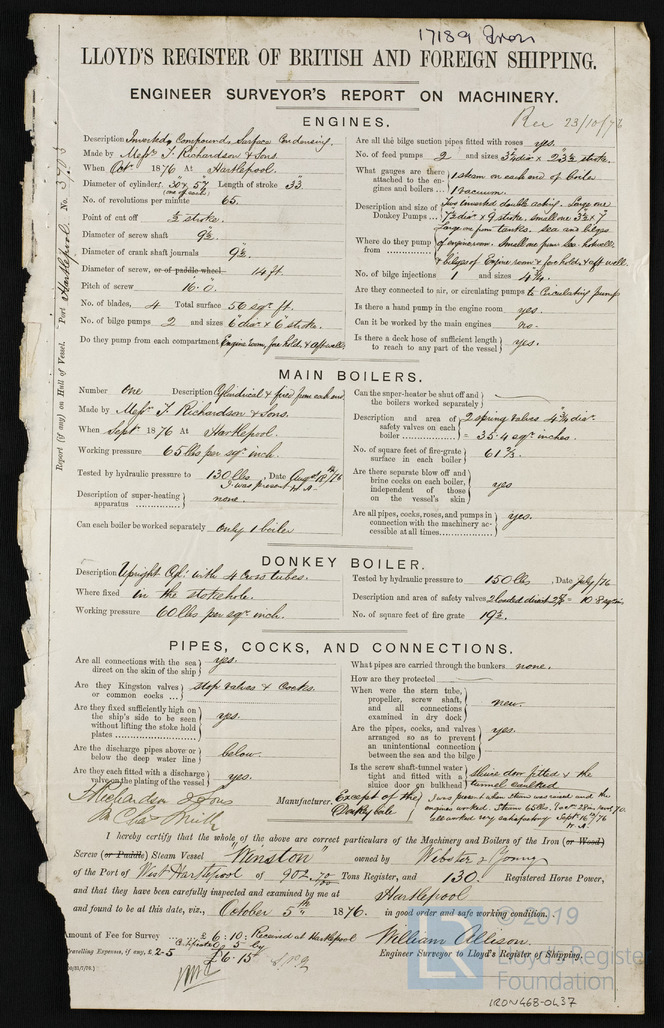 17189 Iron
LLOYD'S REGISTER OF BRITISH AND FOREIGN SHIPPING.
ENGINEER SURVEYOR'S REPORT ON MACHINERY.
Rec 23/10/76
ENGINES.
Report (if any) on Hull of Vessel. Port Hartlepool No.
Description Inverted, Compound, Surface Condensing.
Made by Messrs T. Richardson & Sons.
When Octr 1876 At Hartlepool.
Diameter of cylinders 30 & 57 Length of stroke 33.
(one of each)
No. of revolutions per minute 65.
Point of cut off stroke.
Diameter of screw shaft 9½.
Diameter of crank shaft journals 9½.
Diameter of screw, or of paddle wheel 14 ft.
Pitch of screw 16.0.
No. of blades, 4 Total surface 56 sqr ft.
No. of bilge pumps 2 and sizes 6 diar x 6 stroke.
Do they pump from each compartment Engine room, fore holds, & aft well
Are all the bilge suction pipes fitted with roses yes.
No. of feed pumps 2 and sizes stroke.
What gauges are there attached to the engines and boilers ... 1 steam on each end of boiler
1 vacuum.
Description and size of Donkey Pumps ... Two inverted double acting. Large one
7½ diar x 9 stroke. small one 3½ x 7
Where do they pump from Large one from tanks. sea and bilges
of engine room. Small one from sea. hotwell
& bilges of Engine room & fore holds & aft well.
No. of bilge injections 1 and sizes 4¾.
Are they connected to air, or circulating pumps to Circulating pump
Is there a hand pump in the engine room yes.
Can it be worked by the main engines no.
Is there a deck hose of sufficient length to reach to any part of the vessel yes.
MAIN BOILERS.
Number one Description Cylindrical & fired from each end
Made by Messrs T. Richardson & Sons.
When Septr 1876 At Hartlepool.
Working pressure 65 lbs per sqr inch.
Tested by hydraulic pressure to 130 lbs. Date Augst 18th/76
I was present W.A.
Description of super-heating apparatus none.
Can each boiler be worked separately only 1 boiler
Can the super-heater be shut off and the boilers worked separately
Description and area of safety valves on each boiler 2 spring valves 4¾ diar.
= 35.4 sqr inches.
No. of square feet of fire-grate surface in each boiler 61⅔.
Are there separate blow off and brine cocks on each boiler, independent of those on the vessel's skin yes
Are all pipes, cocks, roses, and pumps in connection with the machinery accessible at all times yes.
DONKEY BOILER.
Description Upright Cyl: with 4 cross tubes.
Where fixed in the stokehole.
Working pressure 60 lbs per sqr inch.
Tested by hydraulic pressure to 150 lbs, Date July/76
Description and area of safety valves, 2 loaded direct = 10.8 sq in
No. of square feet of fire grate 19½.
PIPES, COCKS, AND CONNECTIONS.
Are all connections with the sea direct on the skin of the ship yes.
Are they Kingston valves or common cocks ... stop valves & Cocks.
Are they fixed sufficiently high on the ship's side to be seen without lifting the stoke hold plates yes.
Are the discharge pipes above or below the deep water line below.
Are they each fitted with a discharge valve on the plating of the vessel yes.
What pipes are carried through the bunkers none.
How are they protected
When were the stern tube, propeller, screw shaft, and all connections examined in dry dock new.
Are the pipes, cocks, and valves arranged so as to prevent an unintentional connection between the sea and the bilge yes.
Is the screw shaft-tunnel water tight and fitted with a sluice door on bulkhead sluice door fitted & the
tunnel caulked
T. Richardson & Sons
Manufacturer. Except of the
I was present when steam was raised and the
engines worked. Steam 65 lbs.
all worked very satisfactory Septr 16th/76
W.A.
I hereby certify that the whole of the above are correct particulars of the Machinery and Boilers of the Iron (or Wood)
Screw (or Paddle) Steam Vessel "Winston" owned by Webster & Young
of the Port of West Hartlepool of 902 70/100 Tons Register, and 130. Registered Horse Power,
and that they have been carefully inspected and examined by me at Hartlepool
and found to be at this date, viz., October 5th 1876. in good order and safe working condition.
Amount of Fee for Survey ... £6:10: Received at Hartlepool
William Allison.
Travelling Expenses, if any, £ 2-5
£6.15
Engineer Surveyor to Lloyd's Register of Shipping.
© 2019
LR
Lloyd's Register
Foundation
IRON468-0437